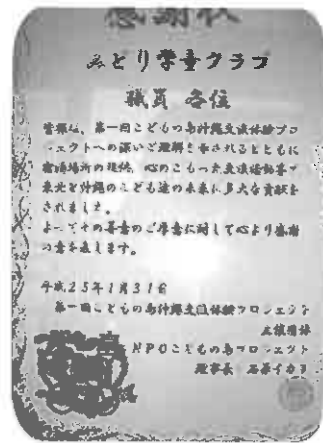 感謝状
みとり学童クラブ
職員 各位
皆様は、第一回こどもの島沖縄交流体験プロ
ジェクトへの深いご理解を寄せられるとともに
宿泊場所の提供、心のこもった交流活動等で
東北と沖縄のこども達の未来に多大な貢献を
されました。
よってその善意のご厚意に対して心より感謝
の意を表します。
平成25年1月31日
第一回こどもの島沖縄交流体験プロジェクト
主催団体
NPOこどもの島プロジェクト
理事長